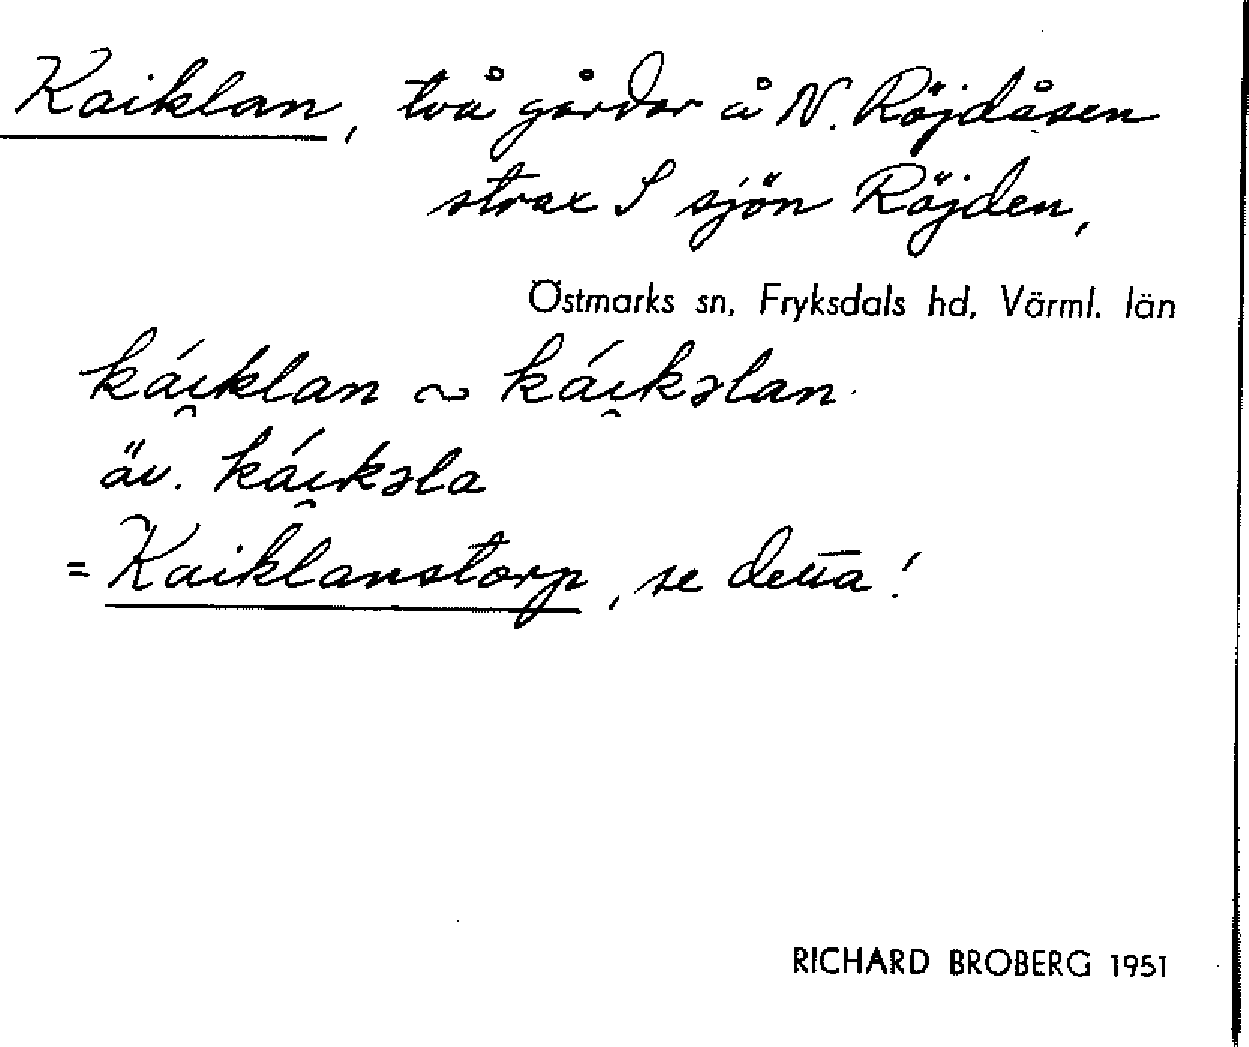 Kaiklan, två gårdar å N. Röjdåsen
strax S sjön Röjden,
Östmarks sn, Fryksdals hd, Värml. län
káı̯klan ~ káı̯kəlan
äv. káı̯kəla
= Kaiklanstorp, se detta!
RICHARD BROBERG 1951